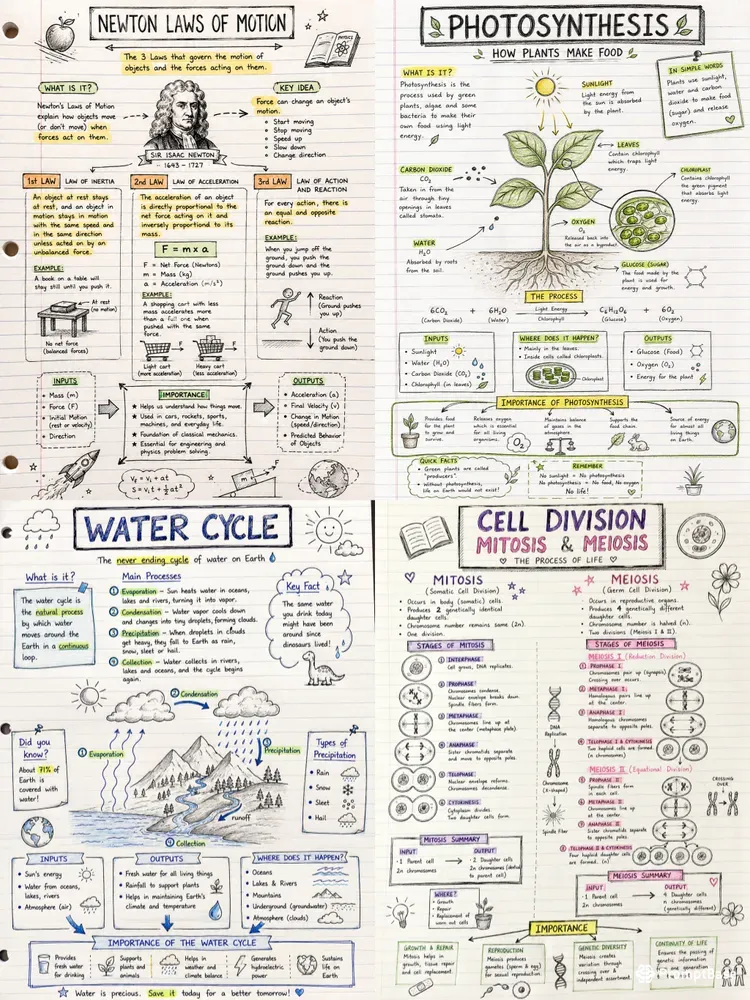 NEWTON LAWS OF MOTION
PHYSICS
The 3 Laws that govern the motion of
objects and the forces acting on them.
WHAT IS IT?
Newton's Laws of Motion
explain how objects move
(or don't move) when
forces act on them.
KEY IDEA
Force can change an object's
motion.
• Start moving
• Stop moving
• Speed up
• Slow down
• Change direction
SIR ISAAC NEWTON
- 1643 - 1727 -
1st LAW LAW OF INERTIA
An object at rest stays
at rest, and an object in
motion stays in motion
with the same speed and
in the same direction
unless acted on by an
unbalanced force.
EXAMPLE:
A book on a table will
stay still until you push it.
At rest
(no motion)
No net force
(balanced forces)
2nd LAW LAW OF ACCELERATION
The acceleration of an object
is directly proportional to the
net force acting on it and
inversely proportional to its
mass.
F = m x a
F = Net Force (Newtons)
m = Mass (kg)
a = Acceleration (m/s²)
EXAMPLE:
A shopping cart with less
mass accelerates more
than a full one when
pushed with the same
force.
F
F
Light cart
(more acceleration)
Heavy cart
(less acceleration)
3rd LAW LAW OF ACTION
AND REACTION
For every action, there is
an equal and opposite
reaction.
EXAMPLE:
When you jump off the
ground, you push the
ground down and the
ground pushes you up.
Reaction
(Ground pushes
you up)
Action
(You push the
ground down)
INPUTS
• Mass (m)
• Force (F)
• Initial Motion
(rest or velocity)
• Direction
IMPORTANCE:
★ Helps us understand how things move.
★ Used in cars, rockets, sports,
machines, and everyday life.
★ Foundation of classical mechanics.
★ Essential for engineering and
physics problem solving.
OUTPUTS
• Acceleration (a)
• Final Velocity (v)
• Change in Motion
(speed/direction)
• Predicted Behavior
of Objects
m
F
PHOTOSYNTHESIS
HOW PLANTS MAKE FOOD
WHAT IS IT?
Photosynthesis is the
process used by green
plants, algae and some
bacteria to make their
own food using light
energy.
SUNLIGHT
Light energy from
the sun is absorbed
by the plant.
IN SIMPLE WORDS
Plants use sunlight,
water and carbon
dioxide to make food
(sugar) and release
oxygen.
LEAVES
Contain chlorophyll
which traps light
energy.
CARBON DIOXIDE
CO₂
Taken in from the
air through tiny
openings in leaves
called stomata.
CHLOROPLAST
Contains chlorophyll
the green pigment
that absorbs light
energy.
OXYGEN
O₂
Released back into
the air as a byproduct
WATER
H₂O
Absorbed by roots
from the soil.
GLUCOSE (SUGAR)
The food made by the
plant is used for
energy and growth.
THE PROCESS
6CO₂ + 6H₂O Light Energy C₆H₁₂O₆ + 6O₂
(Carbon Dioxide) (Water) Chlorophyll (Glucose) (Oxygen)
INPUTS
• Sunlight
• Water (H₂O)
• Carbon Dioxide (CO₂)
• Chlorophyll (in leaves)
WHERE DOES IT HAPPEN?
• Mainly in the leaves.
• Inside cells called chloroplasts.
Chloroplast
OUTPUTS
• Glucose (Food)
• Oxygen (O₂)
• Energy for the plant
IMPORTANCE OF PHOTOSYNTHESIS
Provides food
for the plant
to grow and
survive.
Releases oxygen
which is essential
for all living
organisms.
O₂
Maintains balance
of gases in the
atmosphere.
Supports the
food chain.
Source of energy
for almost all
living things
on Earth.
QUICK FACTS
• Green plants are called
"producers"
• Without photosynthesis,
life on Earth would not exist!
REMEMBER
No sunlight = No photosynthesis
No photosynthesis = No food, No oxygen
No life!
WATER CYCLE
The never ending cycle of water on Earth
What is it?
The water cycle is
the natural process
by which water
moves around the
Earth in a continuous
loop.
Main Processes
① Evaporation – Sun heats water in oceans,
lakes and rivers, turning it into vapor.
② Condensation – Water vapor cools down
and changes into tiny droplets, forming clouds.
③ Precipitation – When droplets in clouds
get heavy, they fall to Earth as rain,
snow, sleet or hail.
④ Collection – Water collects in rivers,
lakes and oceans, and the cycle begins
again.
Key Fact
The same water
you drink today
might have been
around since
dinosaurs lived!
② Condensation
① Evaporation
③ Precipitation
runoff
④ Collection
Did you
know?
About 71% of
Earth is
covered with
water!
Types of
Precipitation
• Rain
• Snow
• Sleet
• Hail
INPUTS
• Sun's energy
• Water from oceans,
lakes, rivers
• Atmosphere (air)
OUTPUTS
• Fresh water for all living things
• Rainfall to support plants
• Helps in maintaining Earth's
climate and temperature
WHERE DOES IT HAPPEN?
• Oceans
• Lakes & Rivers
• Mountains
• Underground (groundwater)
• Atmosphere (clouds)
IMPORTANCE OF THE WATER CYCLE
Provides
fresh water
for drinking
Supports
plants and
animals
Helps in
weather and
climate balance
Generates
hydroelectric
power
Sustains
life on
Earth
★ Water is precious. Save it today for a better tomorrow!
CELL DIVISION
MITOSIS & MEIOSIS
THE PROCESS OF LIFE
MITOSIS
(Somatic Cell Division)
• Occurs in body (somatic) cells.
• Produces 2 genetically identical
daughter cells.
• Chromosome number remains same (2n).
• One division.
MEIOSIS
(Germ Cell Division)
• Occurs in reproductive organs.
• Produces 4 genetically different
daughter cells.
• Chromosome number is halved (n).
• Two divisions (Meiosis I & II).
STAGES OF MITOSIS
① INTERPHASE
Cell grows, DNA replicates.
② PROPHASE
Chromosomes condense.
Nuclear envelope breaks down.
Spindle fibers form.
③ METAPHASE
Chromosomes line up at
the center (metaphase plate)
④ ANAPHASE
Sister chromatids separate
and move to opposite poles.
⑤ TELOPHASE
Nuclear envelope reforms.
Chromosomes decondense.
⑥ CYTOKINESIS
Cytoplasm divides.
Two daughter cells form.
DNA
Replication
Chromosome
(X-shaped)
Spindle Fiber
STAGES OF MEIOSIS
MEIOSIS I (Reduction Division)
PROPHASE I
Chromosomes pair up (synapsis)
Crossing over occurs.
METAPHASE I
Homologous pairs line up
at the center.
ANAPHASE I
Homologous chromosomes
separate to opposite poles.
TELOPHASE I & CYTOKINESIS
Two haploid cells are formed
(n chromosomes)
MEIOSIS II (Equational Division)
PROPHASE II
Spindle fibers form
in each cell.
METAPHASE II
Chromosomes line up
at the center.
ANAPHASE II
Sister chromatids separate
to opposite poles.
TELOPHASE II & CYTOKINESIS
Four haploid daughter cells
are formed. (n)
CROSSING
OVER
MITOSIS SUMMARY
INPUT
1 Parent cell
2n chromosomes
OUTPUT
2 Daughter cells
2n chromosomes
to parent cell)
WHERE?
• Growth
• Repair
• Replacement of
worn out cells
MEIOSIS SUMMARY
INPUT
1 Parent cell
2n chromosomes
OUTPUT
4 Daughter cells
n chromosomes
(genetically different)
IMPORTANCE
GROWTH & REPAIR
Mitosis helps in
growth, tissue repair
and cell replacement.
REPRODUCTION
Meiosis produces
gametes (sperm & egg)
for sexual reproduction.
GENETIC DIVERSITY
Meiosis creates
variation through
crossing over &
independent assortment.
CONTINUITY OF LIFE
Ensures the passing of
genetic information